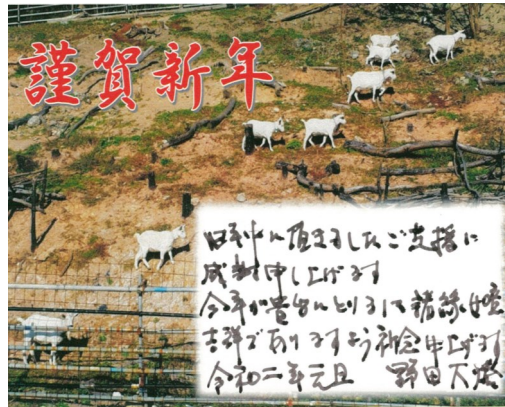 謹賀新年
旧年中に頂きましたご支援に
感謝申し上げます
今年が貴台にとりまして諸縁
吉祥でありますよう祈念申上げます
令和二年元旦 野田大燈